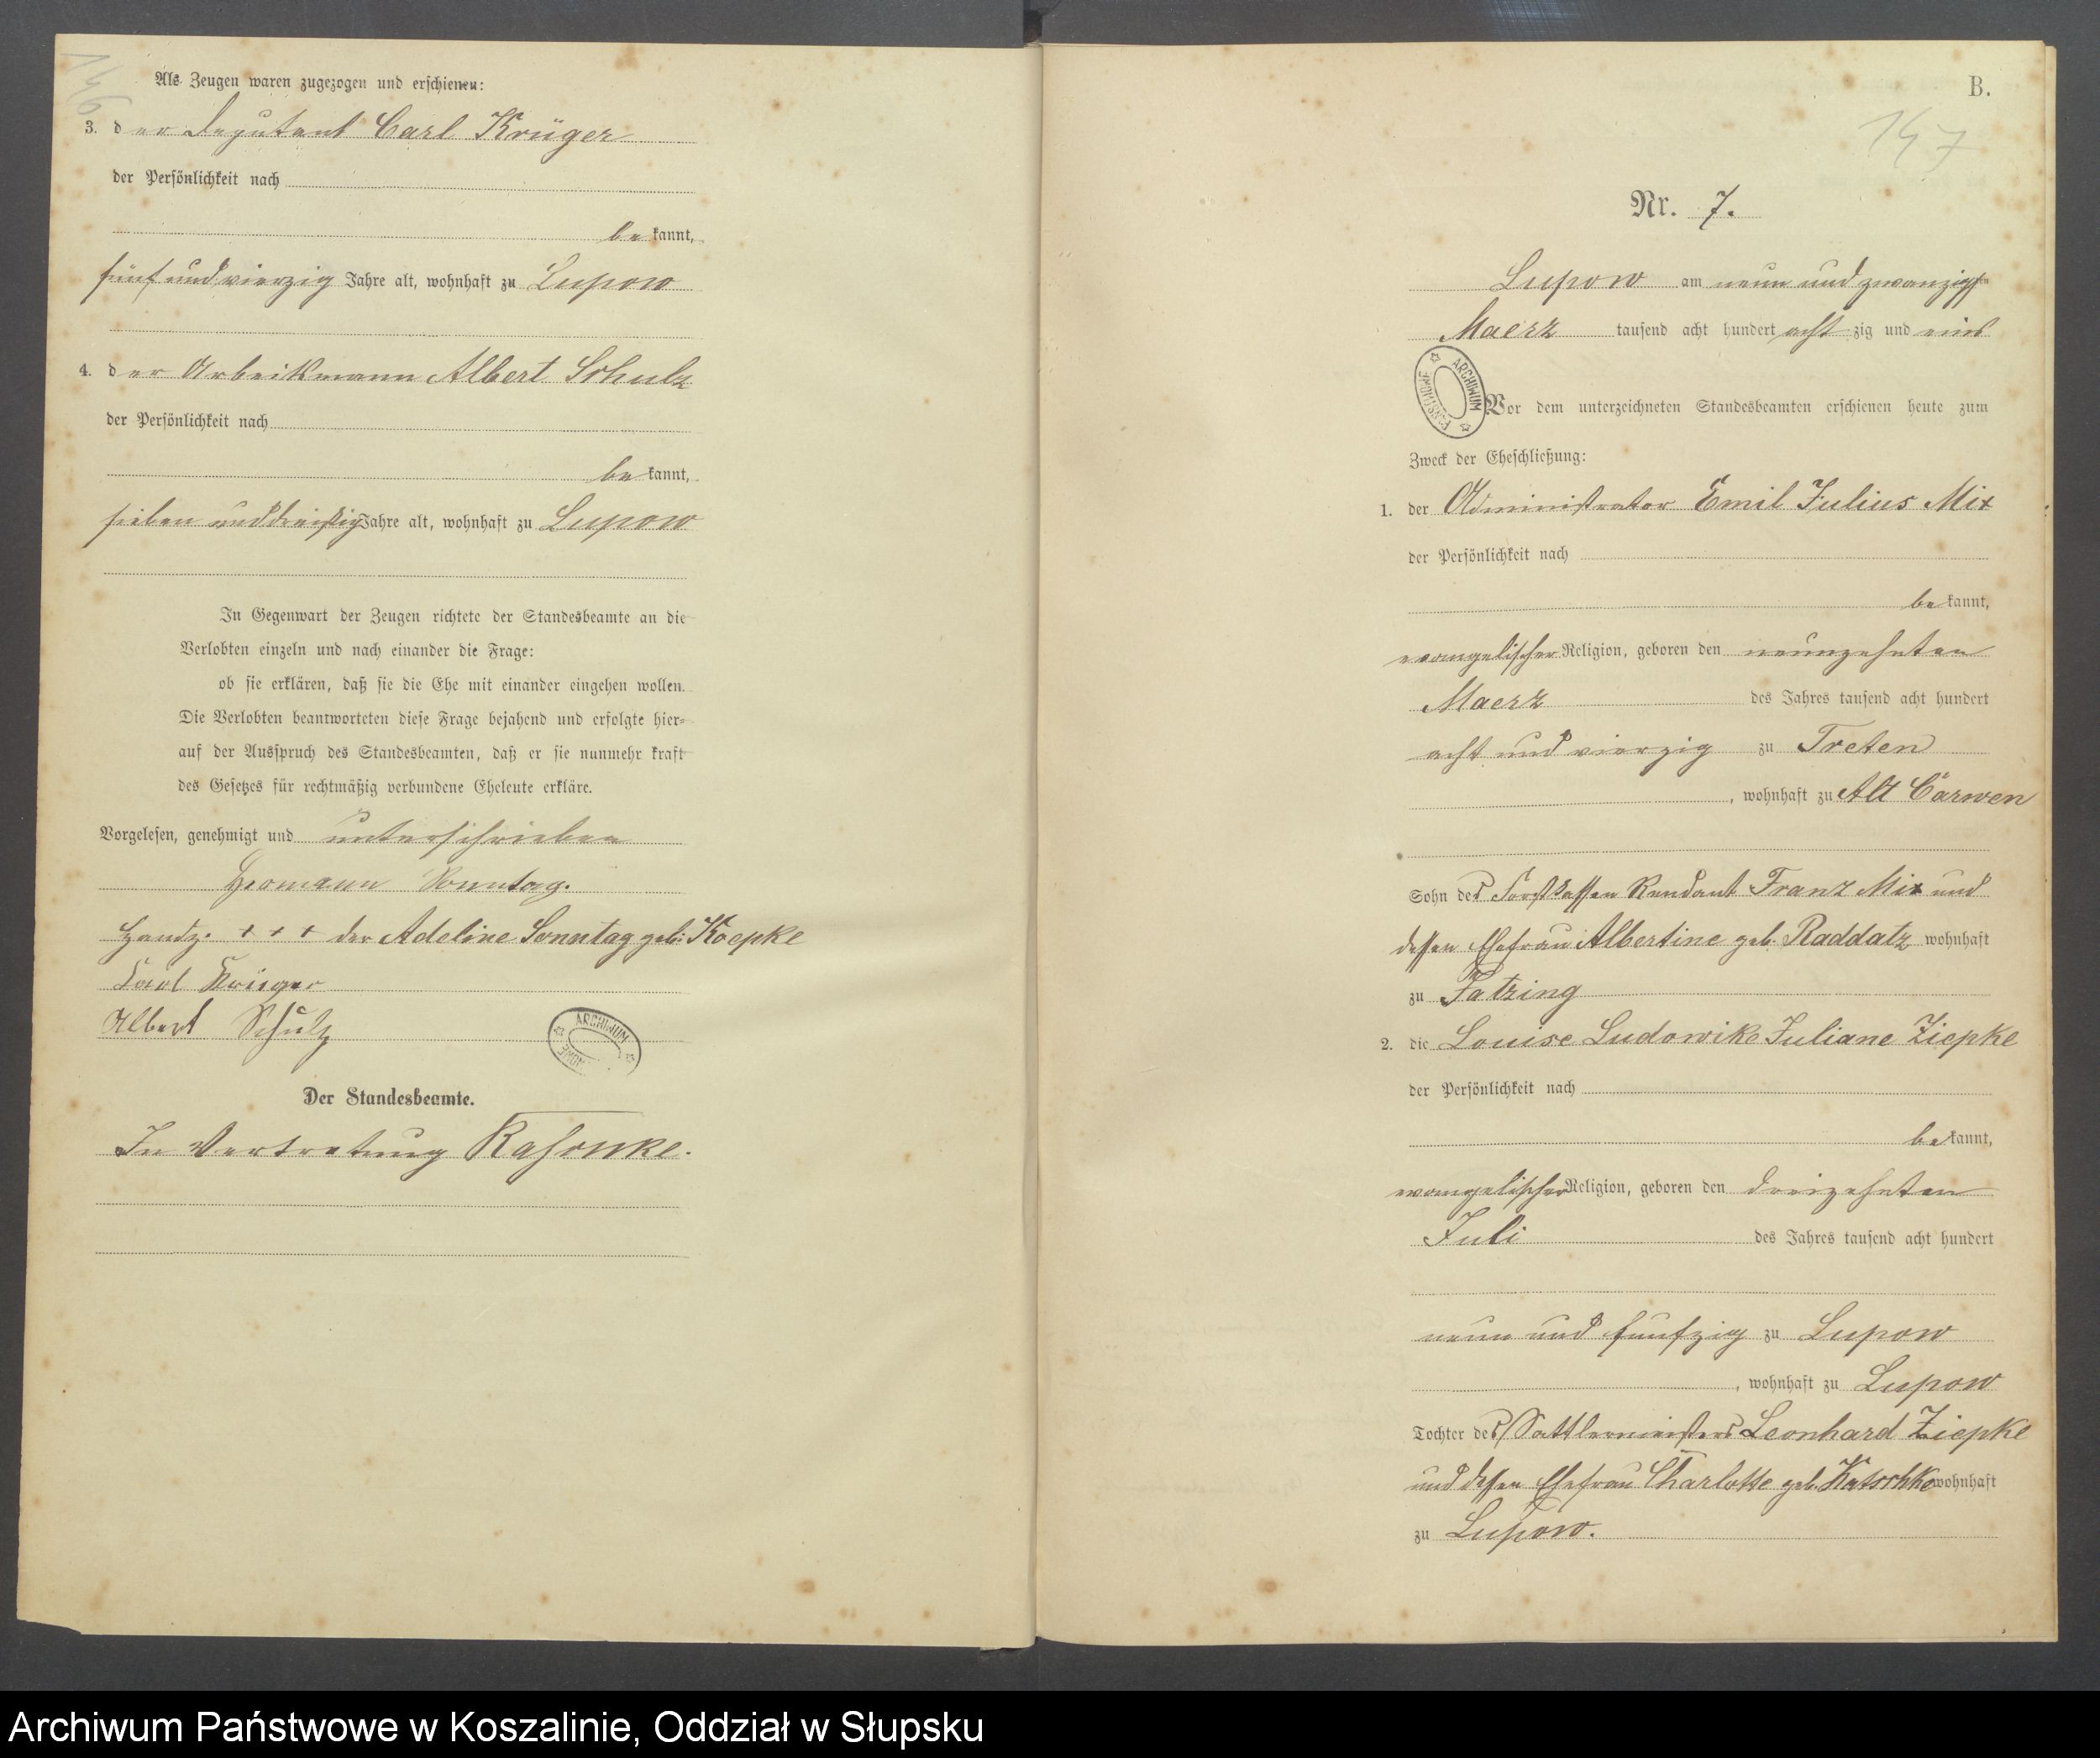 146
Als Zeugen waren zugezogen und erschienen:
3. der Deputant Carl Krüger
der Persönlichkeit nach
be kannt,
fünf und vierzig Jahre alt, wohnhaft zu Lupow
4. der Arbeitsmann Albert Schulz
der Persönlichkeit nach
be kannt,
sieben und dreißig Jahre alt, wohnhaft zu Lupow
In Gegenwart der Zeugen richtete der Standesbeamte an die
Verlobten einzeln und nach einander die Frage:
ob sie erklären, daß sie die Ehe mit einander eingehen wollen.
Die Verlobten beantworteten diese Frage bejahend und erfolgte hier-
auf der Ausspruch des Standesbeamten, daß er sie nunmehr kraft
des Gesetzes für rechtmäßig verbundene Eheleute erkläre.
Vorgelesen, genehmigt und unterschrieben
Hermann Sonntag.
Handz. + + + der Adeline Sonntag geb: Koepke
Carl Krüger
Albert Schulz
ARCHIWUM
Der Standesbeamte.
In Vertretung
B.
147
Nr. 7.
Lupow am neun und zwanzigsten
Maerz tausend acht hundert acht zig und eins
ARCHIWUM PAŃSTWOWE
Vor dem unterzeichneten Standesbeamten erschienen heute zum
Zweck der Eheschließung:
1. der Administrator Emil Julius Mix
der Persönlichkeit nach
be kannt,
evangelischer Religion, geboren den neunzehnten
Maerz des Jahres tausend acht hundert
acht und vierzig zu Treten
, wohnhaft zu Alt Carwen
Sohn des Forstkassen Rendant Franz Mix und
dessen Ehefrau Albertine geb. Raddatz wohnhaft
zu
2. die Louise Ludowike Juliane Ziepke
der Persönlichkeit nach
be kannt,
evangelischer Religion, geboren den dreizehnten
Juli des Jahres tausend acht hundert
neun und funfzig zu Lupow
, wohnhaft zu Lupow
Tochter des Sattlermeisters Leonhard Ziepke
und dessen Ehefrau Charlotte geb. Katschke wohnhaft
zu Lupow.
Archiwum Państwowe w Koszalinie, Oddział w Słupsku